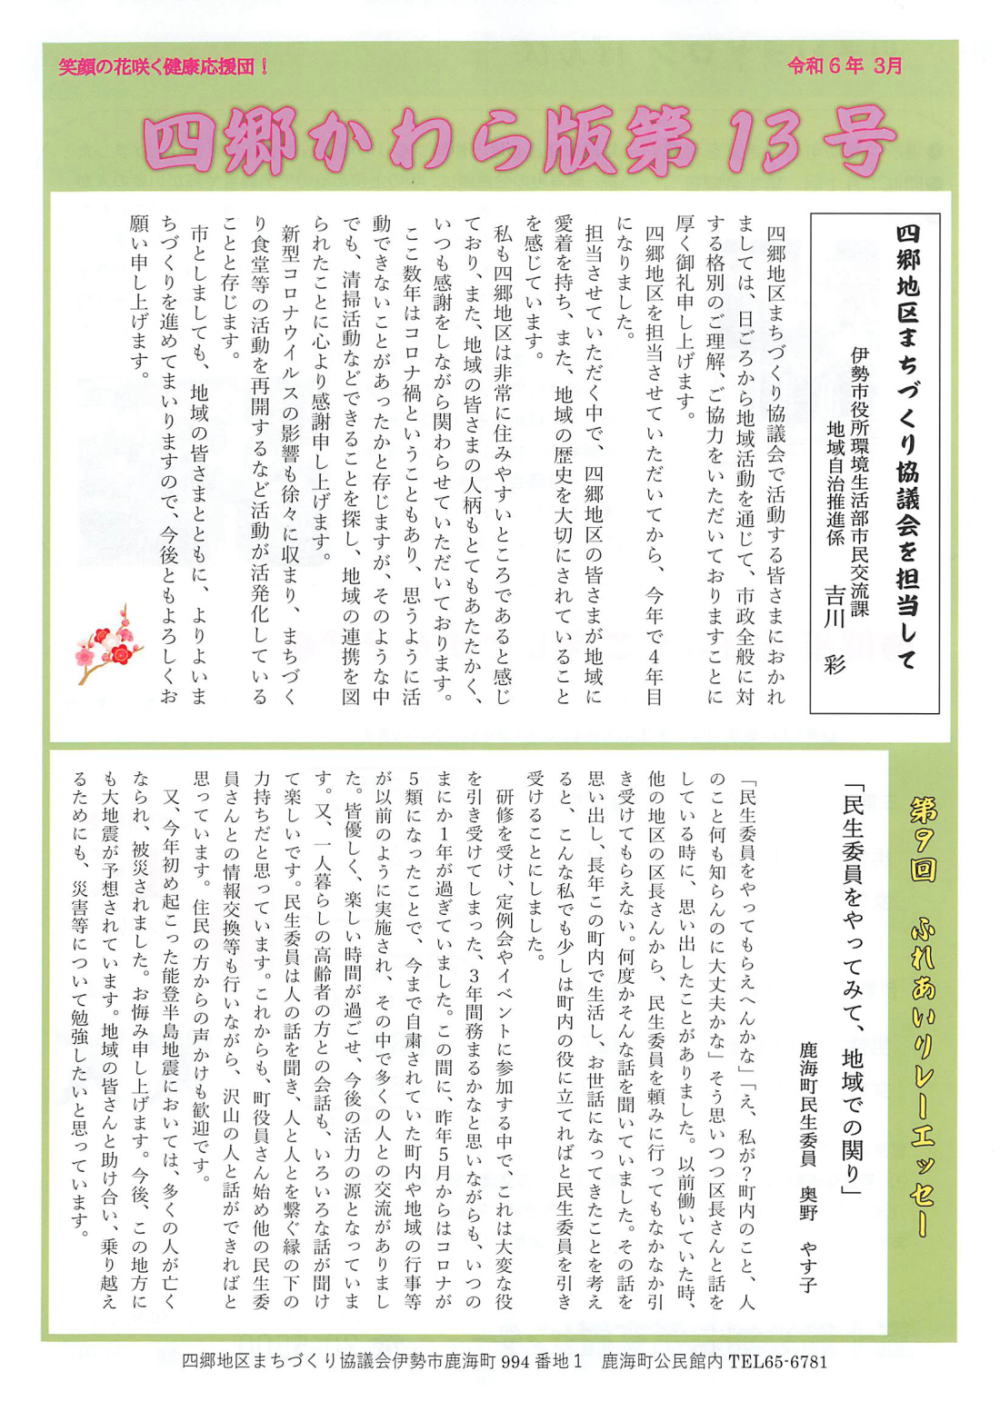 笑顔の花咲く健康応援団！
令和６年 3月
四郷かわら版第13号
四郷地区まちづくり協議会を担当して
伊勢市役所環境生活部市民交流課
地域自治推進係　吉川　彩
四郷地区まちづくり協議会で活動する皆さまにおかれ
ましては、日ごろから地域活動を通じて、市政全般に対
する格別のご理解、ご協力をいただいておりますことに
厚く御礼申し上げます。
四郷地区を担当させていただいてから、今年で４年目
になりました。
担当させていただく中で、四郷地区の皆さまが地域に
愛着を持ち、また、地域の歴史を大切にされていること
を感じています。
私も四郷地区は非常に住みやすいところであると感じ
ており、また、地域の皆さまの人柄もとてもあたたかく、
いつも感謝をしながら関わらせていただいております。
ここ数年はコロナ禍ということもあり、思うように活
動できないことがあったかと存じますが、そのような中
でも、清掃活動などできることを探し、地域の連携を図
られたことに心より感謝申し上げます。
新型コロナウイルスの影響も徐々に収まり、まちづく
り食堂等の活動を再開するなど活動が活発化している
ことと存じます。
市としましても、地域の皆さまとともに、よりよいま
ちづくりを進めてまいりますので、今後ともよろしくお
願い申し上げます。
第９回　ふれあいリレーエッセー
「民生委員をやってみて、地域での関り」
鹿海町民生委員　奥野　やす子
「民生委員をやってもらえへんかな」「え、私が？町内のこと、人
のこと何も知らんのに大丈夫かな」そう思いつつ区長さんと話を
している時に、思い出したことがありました。以前働いていた時、
他の地区の区長さんから、民生委員を頼みに行ってもなかなか引
き受けてもらえない。何度かそんな話を聞いていました。その話を
思い出し、長年この町内で生活し、お世話になってきたことを考え
ると、こんな私でも少しは町内の役に立てればと民生委員を引き
受けることにしました。
研修を受け、定例会やイベントに参加する中で、これは大変な役
を引き受けてしまった、３年間務まるかなと思いながらも、いつの
まにか１年が過ぎていました。この間に、昨年５月からはコロナが
５類になったことで、今まで自粛されていた町内や地域の行事等
が以前のように実施され、その中で多くの人との交流がありまし
た。皆優しく、楽しい時間が過ごせ、今後の活力の源となっていま
す。又、一人暮らしの高齢者の方との会話も、いろいろな話が聞け
て楽しいです。民生委員は人の話を聞き、人と人とを繋ぐ縁の下の
力持ちだと思っています。これからも、町役員さん始め他の民生委
員さんとの情報交換等も行いながら、沢山の人と話ができればと
思っています。住民の方からの声かけも歓迎です。
又、今年初め起こった能登半島地震においては、多くの人が亡く
なられ、被災されました。お悔み申し上げます。今後、この地方に
も大地震が予想されています。地域の皆さんと助け合い、乗り越え
るためにも、災害等について勉強したいと思っています。
四郷地区まちづくり協議会伊勢市鹿海町 994 番地１　鹿海町公民館内 TEL65-6781